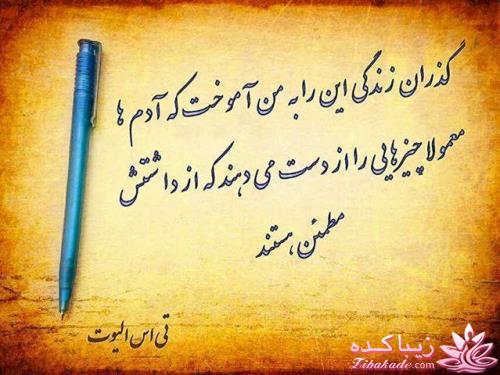 گذران زندگی این را به من آموخت که آدم ها
معمولا چیزهایی را از دست می دهند که از داشتنش
مطمئن هستند
تی اس الیوت
زیباکده
Zibakade.com